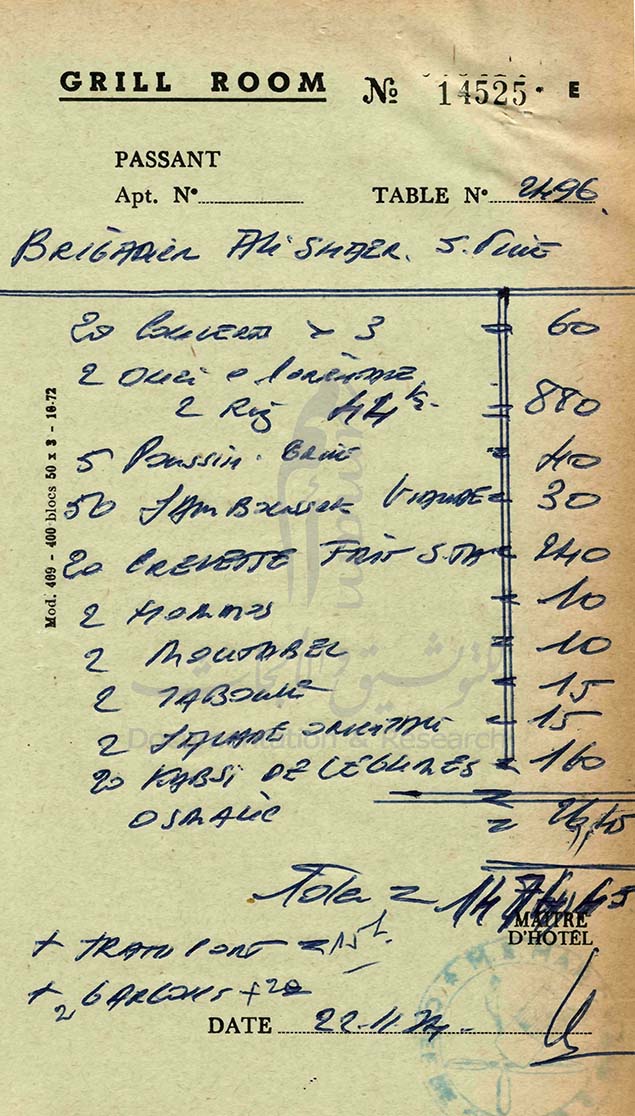 GRILL ROOM № 14525 E
PASSANT
Apt. N°
TABLE N° 2496
BRIGADIER Ali SHAER. S.
20 Couverts x 3 = 60
2
2 Riz 44 k = 880
5 Poussin. Grillé = 40
50 SAMBOUSSEK VIANDE = 30
20 CREVETTE FRIT = 240
2 HOMMOS = 10
2 MOUTABEL = 10
2 TABOULÉ = 15
2 SALADE ORIENTALE = 15
20 DE LEGUMES = 160
OSMALIE =
Total =
MAITRE
D'HÔTEL
+ TRANSPORT = 15
+ 2 GARCONS + 20
DATE 22.11.74
Mod. 409 - 400 blocs 50 x 3 - 10-72
للتوثيق والأبحاث
Documentation & Research